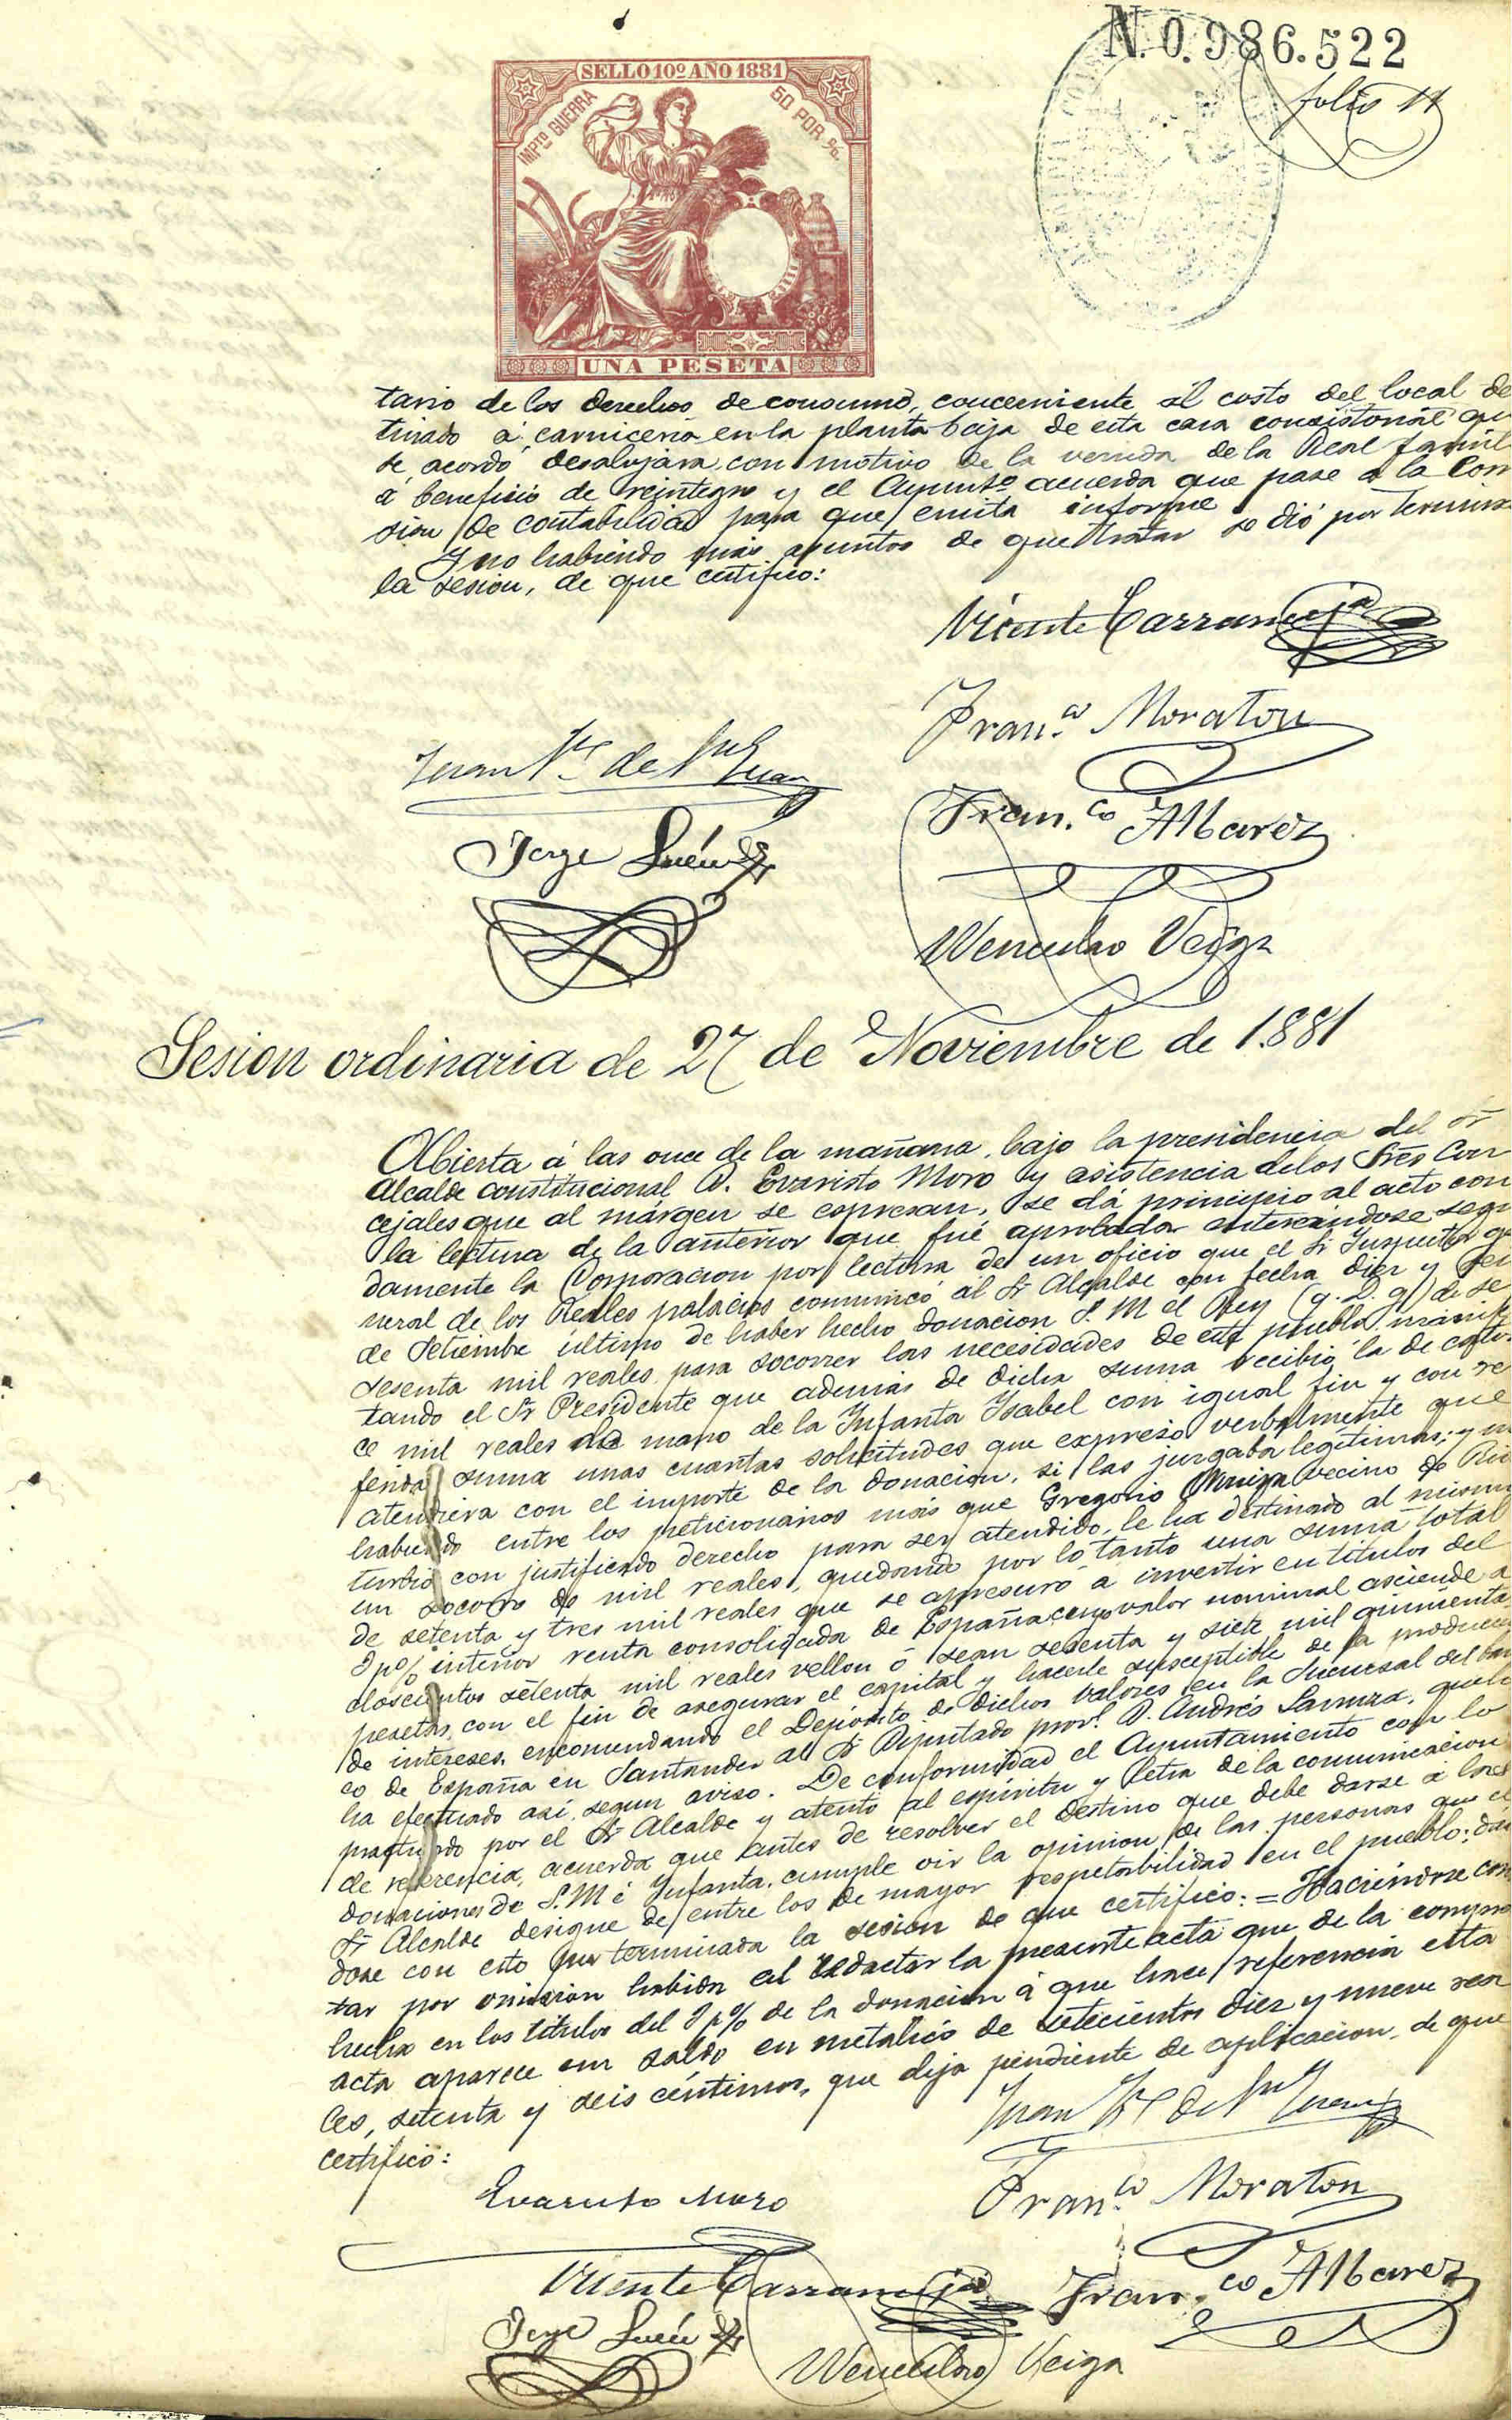 N. 0.986.522
folio 11
SELLO 10º AÑO 1881
IMPTO GUERRA
50 POR %
UNA PESETA
tario de los derechos de consumo, concerniente al costo del local de
tinado á carniceria en la planta baja de esta casa consistorial qu
se acordó desalojara con motivo de la venida de la Real famil
á beneficio de reintegro y el Ayuntº acuerda que pase á la Com
sion de contabilidad para que emita informe
Y no habiendo más asuntos de que tratar se dió por termina
la sesion, de que certifico:
Vicente Carranceja
Fran.co Moraton
Juan
Fran.co Albarez
Jorge
Wenceslao Veiga
Sesion ordinaria de 27 de Noviembre de 1.881
Abierta á las once de la mañana, bajo la presidencia del Sr
Alcalde constitucional D. Evaristo Moro y asistencia de los Sres Con
cejales que al márgen se espresan, se dá principio al acto con
la lectura de la anterior que fué aprobada enterándose segu
damente la Corporacion por lectura de un oficio que el Sr Inspector ge
neral de los Reales palacios comunicó al Sr Alcalde con fecha diez y
de Setiembre último de haber hecho donacion S. M el Rey (q. D. g) de se
sesenta mil reales para socorrer las necesidades de este pueblo, manifes
tando el Sr Presidente que además de dicha suma recibió la de cator
ce mil reales de mano de la Infanta Isabel con igual fin y con re
ferida suma unas cuantas solicitudes que expresó verbalmente que
atendiera con el importe de la donacion, si las juzgaba legítimas; y no
habiendo entre los peticionarios más que Gregorio vecino de Rui
turbio con justificado derecho para ser atendido, le ha destinado al mismo
un socorro de mil reales, quedando por lo tanto una suma total
de setenta y tres mil reales que se apresuró á invertir en titulos del
3 p% interior renta consolidada de España cuyo valor nominal asciende a
doscientos setenta mil reales vellon ó sean sesenta y siete mil quinientas
pesetas, con el fin de asegurar el capital y hacerle susceptible de la produccion
de intereses, encomendando el Depósito de dichos valores en la Sucursal del Ban
co de España en Santander al Sr Diputado provl. D. Andrés Lanuza, quele
ha efectuado así, segun aviso. De conformidad el Ayuntamiento con lo
practicado por el Sr Alcalde y atento al espíritu y letra de la comunicacion
de referencia, acuerda que antes de resolver el destino que debe darse a las
donaciones de S. M é Infanta, cumple oir la opinion de las personas que el
Sr Alcalde designe de entre los de mayor respetabilidad en el pueblo; dan
dose con esto por terminada la sesion de que certifico: = Haciéndose cons
tar por omision habida al redactar la presente acta que de la compra
hecha en los titulos del 3 p% de la donacion á que hace referencia esta
acta aparece un saldo en metalico de setecientos diez y nueve rea
les, setenta y seis céntimos, que deja pendiente de aplicacion, de que
certifico:
Juan
Evaristo Moro
Fran.co Moraton
Vicente Carranceja
Fran.co Albarez
Jorge
Wenceslao Veiga